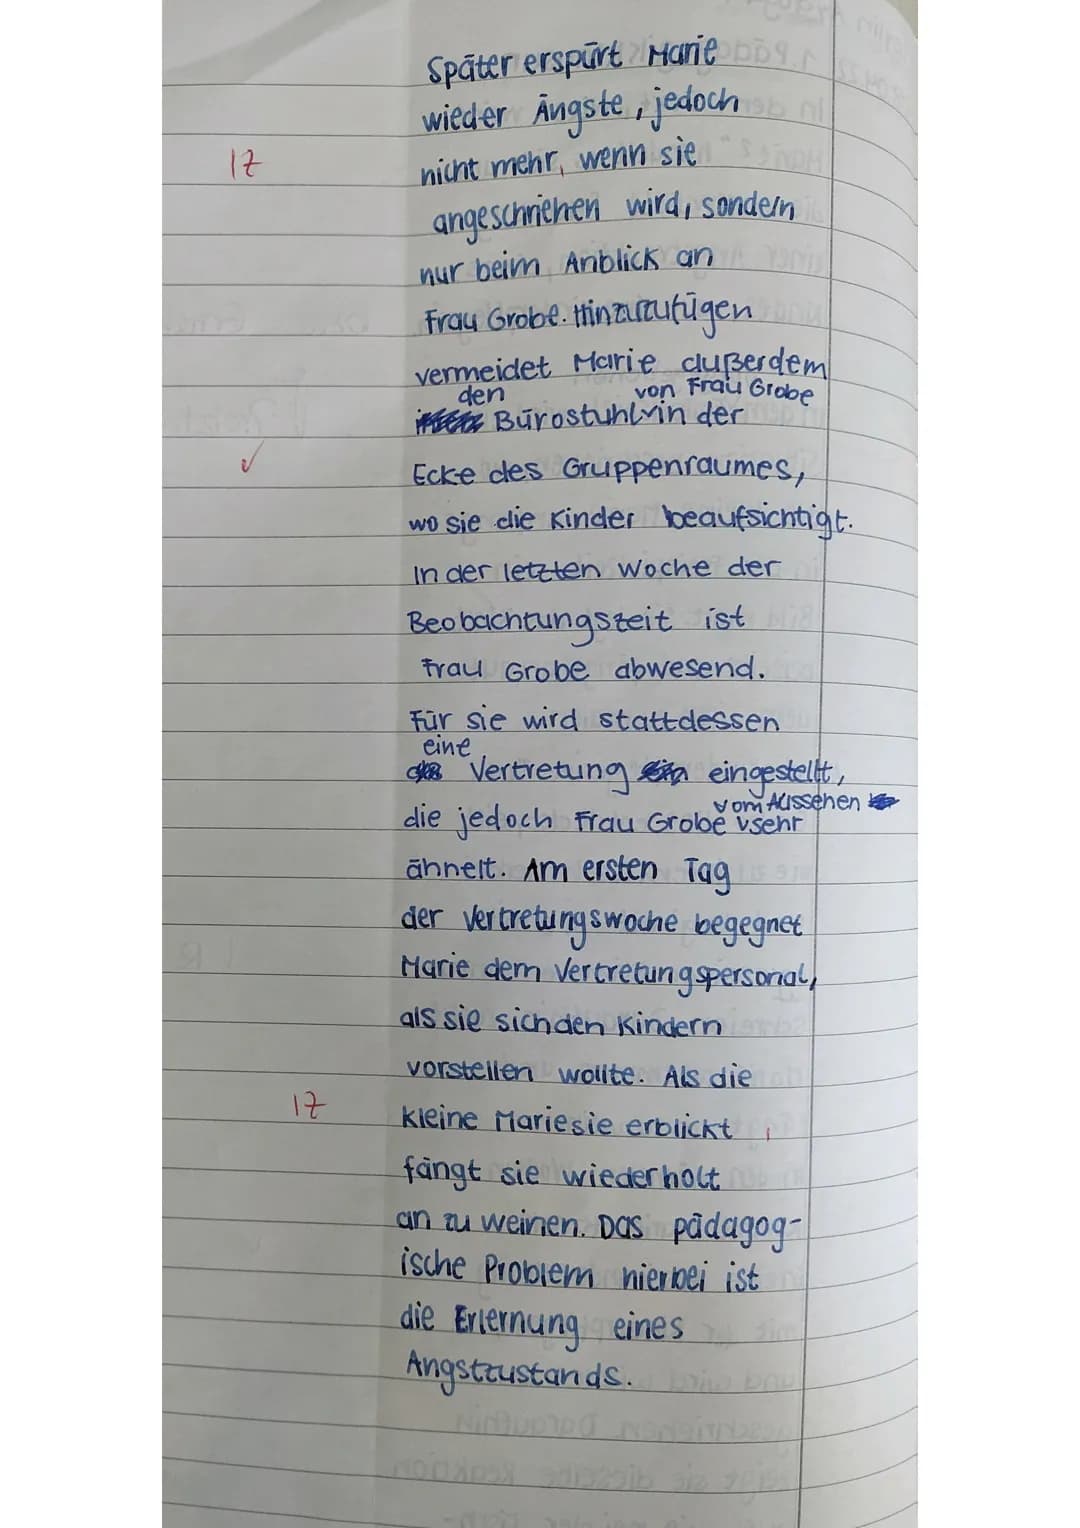 Später erspürt Marie
wieder Ängste, jedoch
IZ
nicht mehr, wenn sie
angeschriehen wird, sondern
nur beim Anblick an
Frau Grobe. Hinzuzufügen
vermeidet Marie außerdem
den von Frau Grobe
Bürostuhl in der
✓
Ecke des Gruppenraumes,
wo sie die Kinder beaufsichtigt.
In der letzten Woche der
Beobachtungszeit ist
Frau Grobe abwesend.
Für sie wird stattdessen
eine
Vertretung eingestellt,
vom Aussehen
die jedoch Frau Grobe sehr
ähnelt. Am ersten Tag
der Vertretungswoche begegnet
Marie dem Vertretungspersonal,
als sie sich den Kindern
vorstellen wollte. Als die
IZ
kleine Marie sie erblickt,
fängt sie wiederholt
an zu weinen. Das pädagog-
ische Problem hierbei ist
die Erlernung eines
Angstzustands.